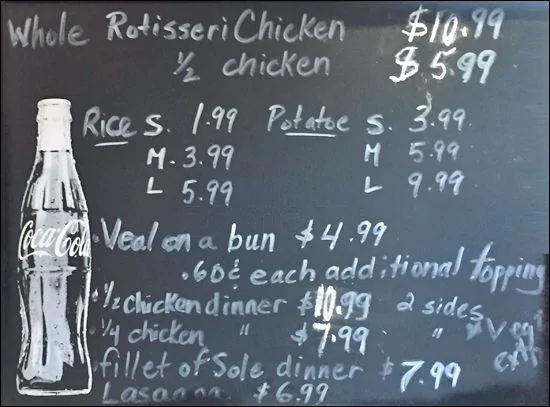 Whole Rotisseri Chicken $10.99
1/2 chicken $5.99
Rice S. 1.99 Potatoe S. 3.99
M. 3.99 M 5.99
L 5.99 L 9.99
Coca-Cola
Veal on a bun $4.99
.60¢ each additional topping
1/2 chicken dinner $10.99 2 sides
1/4 chicken " $7.99 "
fillet of Sole dinner $7.99
$6.99